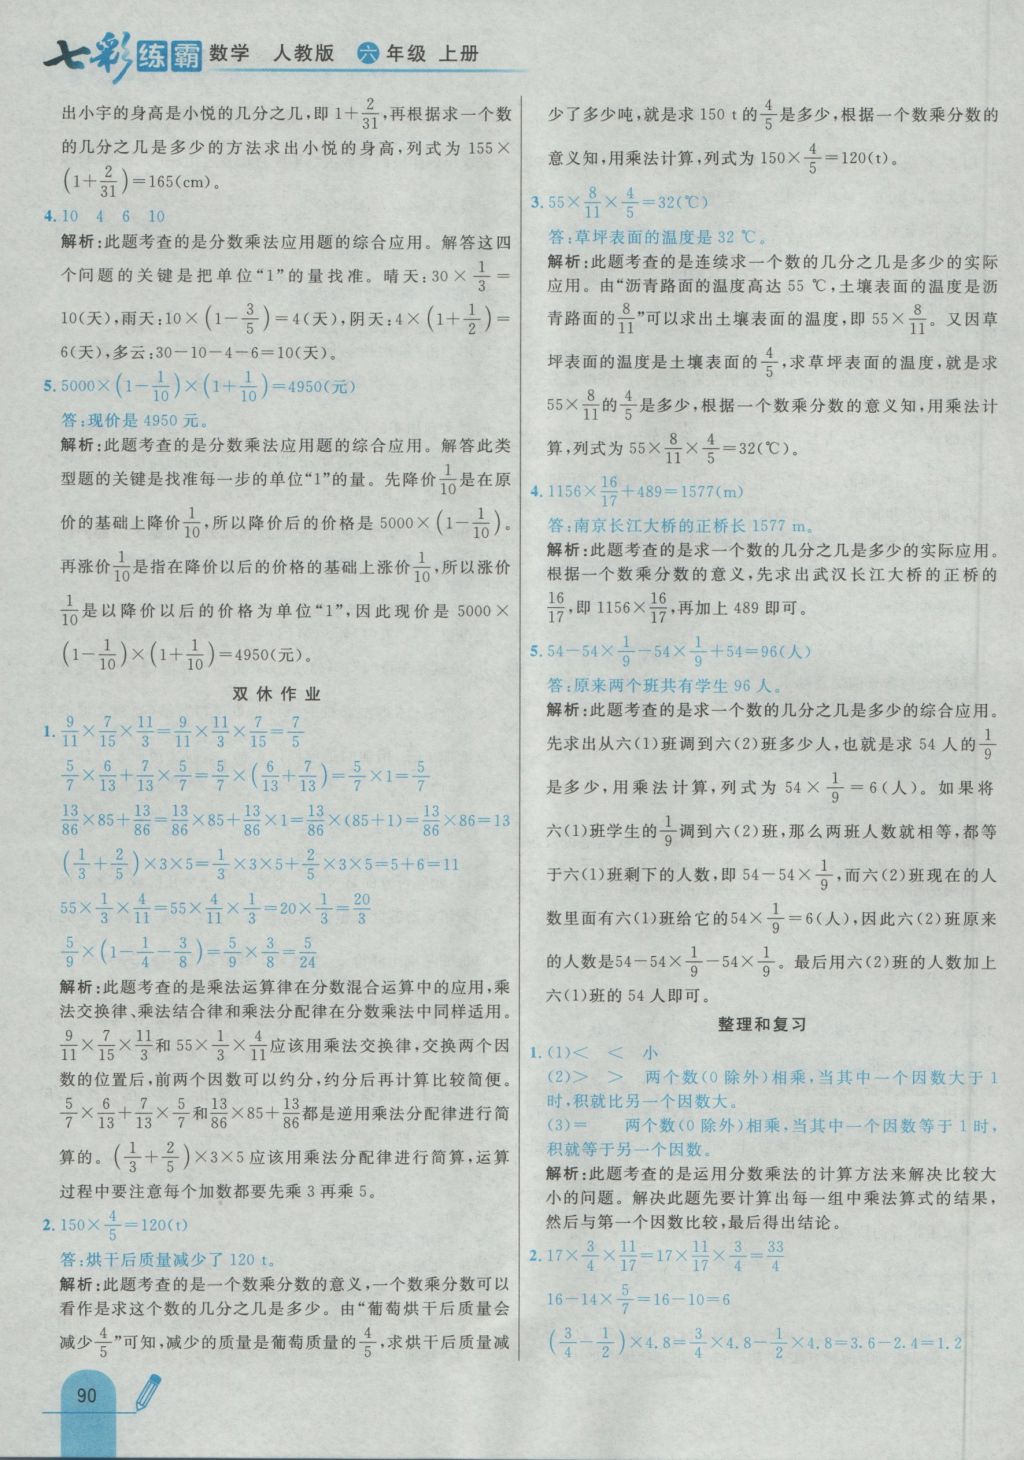 七彩练霸 数学 人教版 六年级 上册
出小宇的身高是小悦的几分之几,即 1+2/31,再根据求一个数
的几分之几是多少的方法求出小悦的身高,列式为 155×
(1+2/31)=165(cm)。
4. 10 4 6 10
解析:此题考查的是分数乘法应用题的综合应用。解答这四
个问题的关键是把单位“1”的量找准。晴天:30×1/3=
10(天),雨天:10×(1-3/5)=4(天),阴天:4×(1+1/2)=
6(天),多云:30-10-4-6=10(天)。
5. 5000×(1-1/10)×(1+1/10)=4950(元)
答:现价是 4950 元。
解析:此题考查的是分数乘法应用题的综合应用。解答此类
型题的关键是找准每一步的单位“1”的量。先降价1/10是在原
价的基础上降价1/10,所以降价后的价格是 5000×(1-1/10)。
再涨价1/10是指在降价以后的价格的基础上涨价1/10,所以涨价
1/10是以降价以后的价格为单位“1”,因此现价是 5000×
(1-1/10)×(1+1/10)=4950(元)。
双休作业
1. 9/11×7/15×11/3=9/11×11/3×7/15=7/5
5/7×6/13+7/13×5/7=5/7×(6/13+7/13)=5/7×1=5/7
13/86×85+13/86=13/86×85+13/86×1=13/86×(85+1)=13/86×86=13
(1/3+2/5)×3×5=1/3×3×5+2/5×3×5=5+6=11
55×1/3×4/11=55×4/11×1/3=20×1/3=20/3
5/9×(1-1/4-3/8)=5/9×3/8=5/24
解析:此题考查的是乘法运算律在分数混合运算中的应用,乘
法交换律、乘法结合律和乘法分配律在分数乘法中同样适用。
9/11×7/15×11/3和 55×1/3×4/11应该用乘法交换律,交换两个因
数的位置后,前两个因数可以约分,约分后再计算比较简便。
5/7×6/13+7/13×5/7和13/86×85+13/86都是逆用乘法分配律进行简
算的。(1/3+2/5)×3×5 应该用乘法分配律进行简算,运算
过程中要注意每个加数都要先乘 3 再乘 5。
2. 150×4/5=120(t)
答:烘干后质量减少了 120 t。
解析:此题考查的是一个数乘分数的意义,一个数乘分数可以
看作是求这个数的几分之几是多少。由“葡萄烘干后质量会
减少4/5”可知,减少的质量是葡萄质量的4/5,求烘干后质量减
90
少了多少吨,就是求 150 t 的4/5是多少,根据一个数乘分数的
意义知,用乘法计算,列式为 150×4/5=120(t)。
3. 55×8/11×4/5=32(℃)
答:草坪表面的温度是 32 ℃。
解析:此题考查的是连续求一个数的几分之几是多少的实际
应用。由“沥青路面的温度高达 55 ℃,土壤表面的温度是沥
青路面的8/11”可以求出土壤表面的温度,即 55×8/11。又因草
坪表面的温度是土壤表面的4/5,求草坪表面的温度,就是求
55×8/11的4/5是多少,根据一个数乘分数的意义知,用乘法计
算,列式为 55×8/11×4/5=32(℃)。
4. 1156×16/17+489=1577(m)
答:南京长江大桥的正桥长 1577 m。
解析:此题考查的是求一个数的几分之几是多少的实际应用。
根据一个数乘分数的意义,先求出武汉长江大桥的正桥的
16/17,即 1156×16/17,再加上 489 即可。
5. 54-54×1/9-54×1/9+54=96(人)
答:原来两个班共有学生 96 人。
解析:此题考查的是求一个数的几分之几是多少的综合应用。
先求出从六(1)班调到六(2)班多少人,也就是求 54 人的1/9
是多少,用乘法计算,列式为 54×1/9=6(人)。如果将
六(1)班学生的1/9调到六(2)班,那么两班人数就相等,都等
于六(1)班剩下的人数,即 54-54×1/9,而六(2)班现在的人
数里面有六(1)班给它的54×1/9=6(人),因此六(2)班原来
的人数是54-54×1/9-54×1/9。最后用六(2)班的人数加上
六(1)班的 54 人即可。
整理和复习
1. (1)< < 小
(2)> > 两个数(0 除外)相乘,当其中一个因数大于 1
时,积就比另一个因数大。
(3)= 两个数(0 除外)相乘,当其中一个因数等于 1 时,
积就等于另一个因数。
解析:此题考查的是运用分数乘法的计算方法来解决比较大
小的问题。解决此题先要计算出每一组中乘法算式的结果,
然后与第一个因数比较,最后得出结论。
2. 17×3/4×11/17=17×11/17×3/4=33/4
16-14×5/7=16-10=6
(3/4-1/2)×4.8=3/4×4.8-1/2×4.8=3.6-2.4=1.2